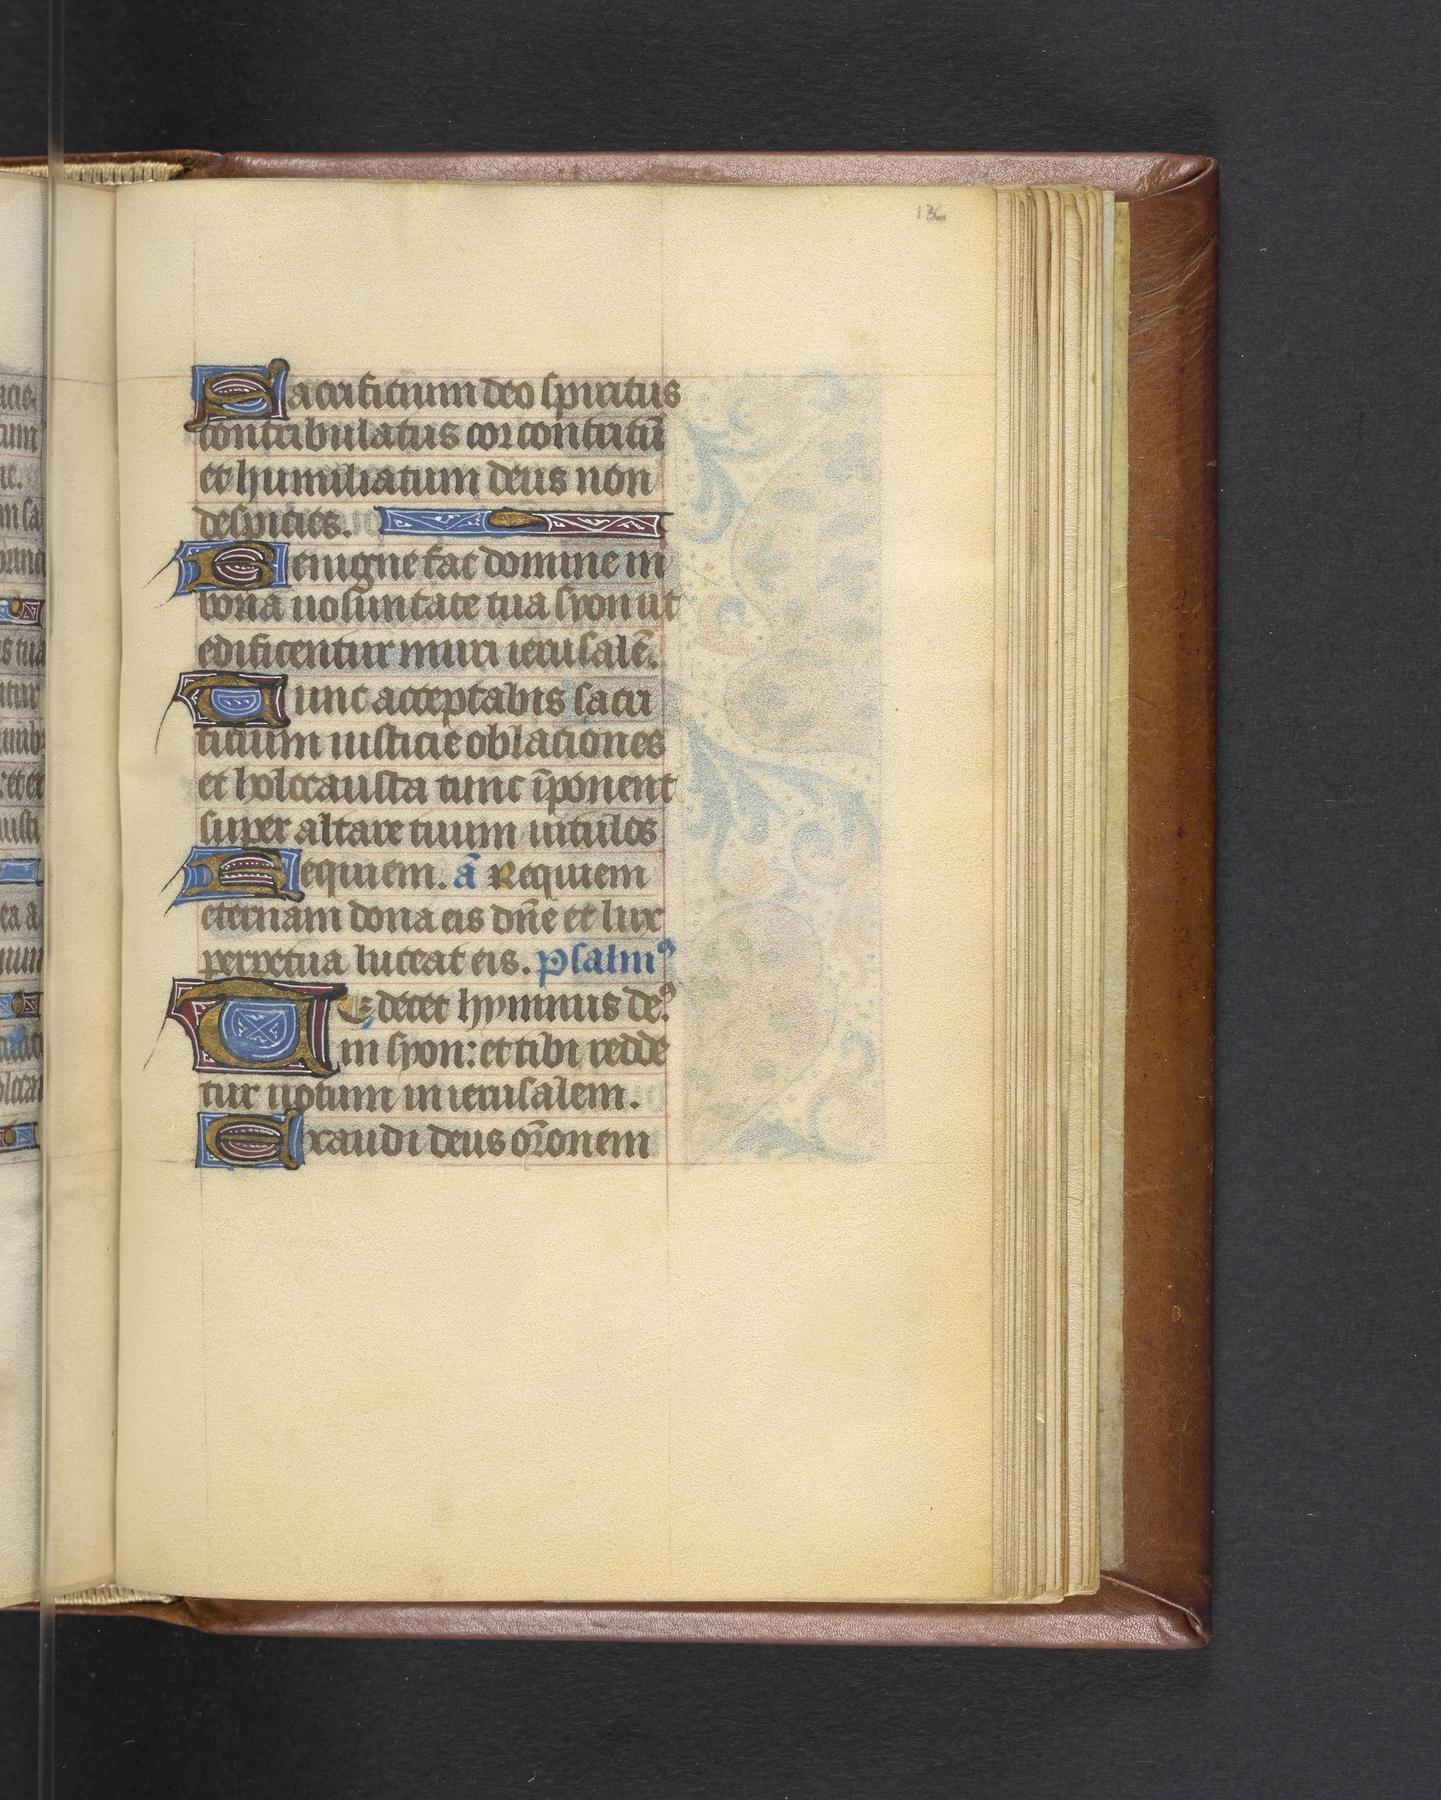 136
Sacrificium deo spiritus
contribulatus cor contritū
et humiliatum deus non
despicies.
Benigne fac domine in
bona uoluntate tua syon ut
edificentur muri ierusalē.
Tunc acceptabis sacri
ficium iusticie oblaciones
et holocausta tunc īponent
super altare tuum uitulos
Requiem. ā Requiem
eternam dona eis dñe et lux
perpetua luceat eis. psalmꝰ
TE decet hymnus deꝰ
in syon: et tibi redde
tur uotum in ierusalem.
Exaudi deus or̄onem